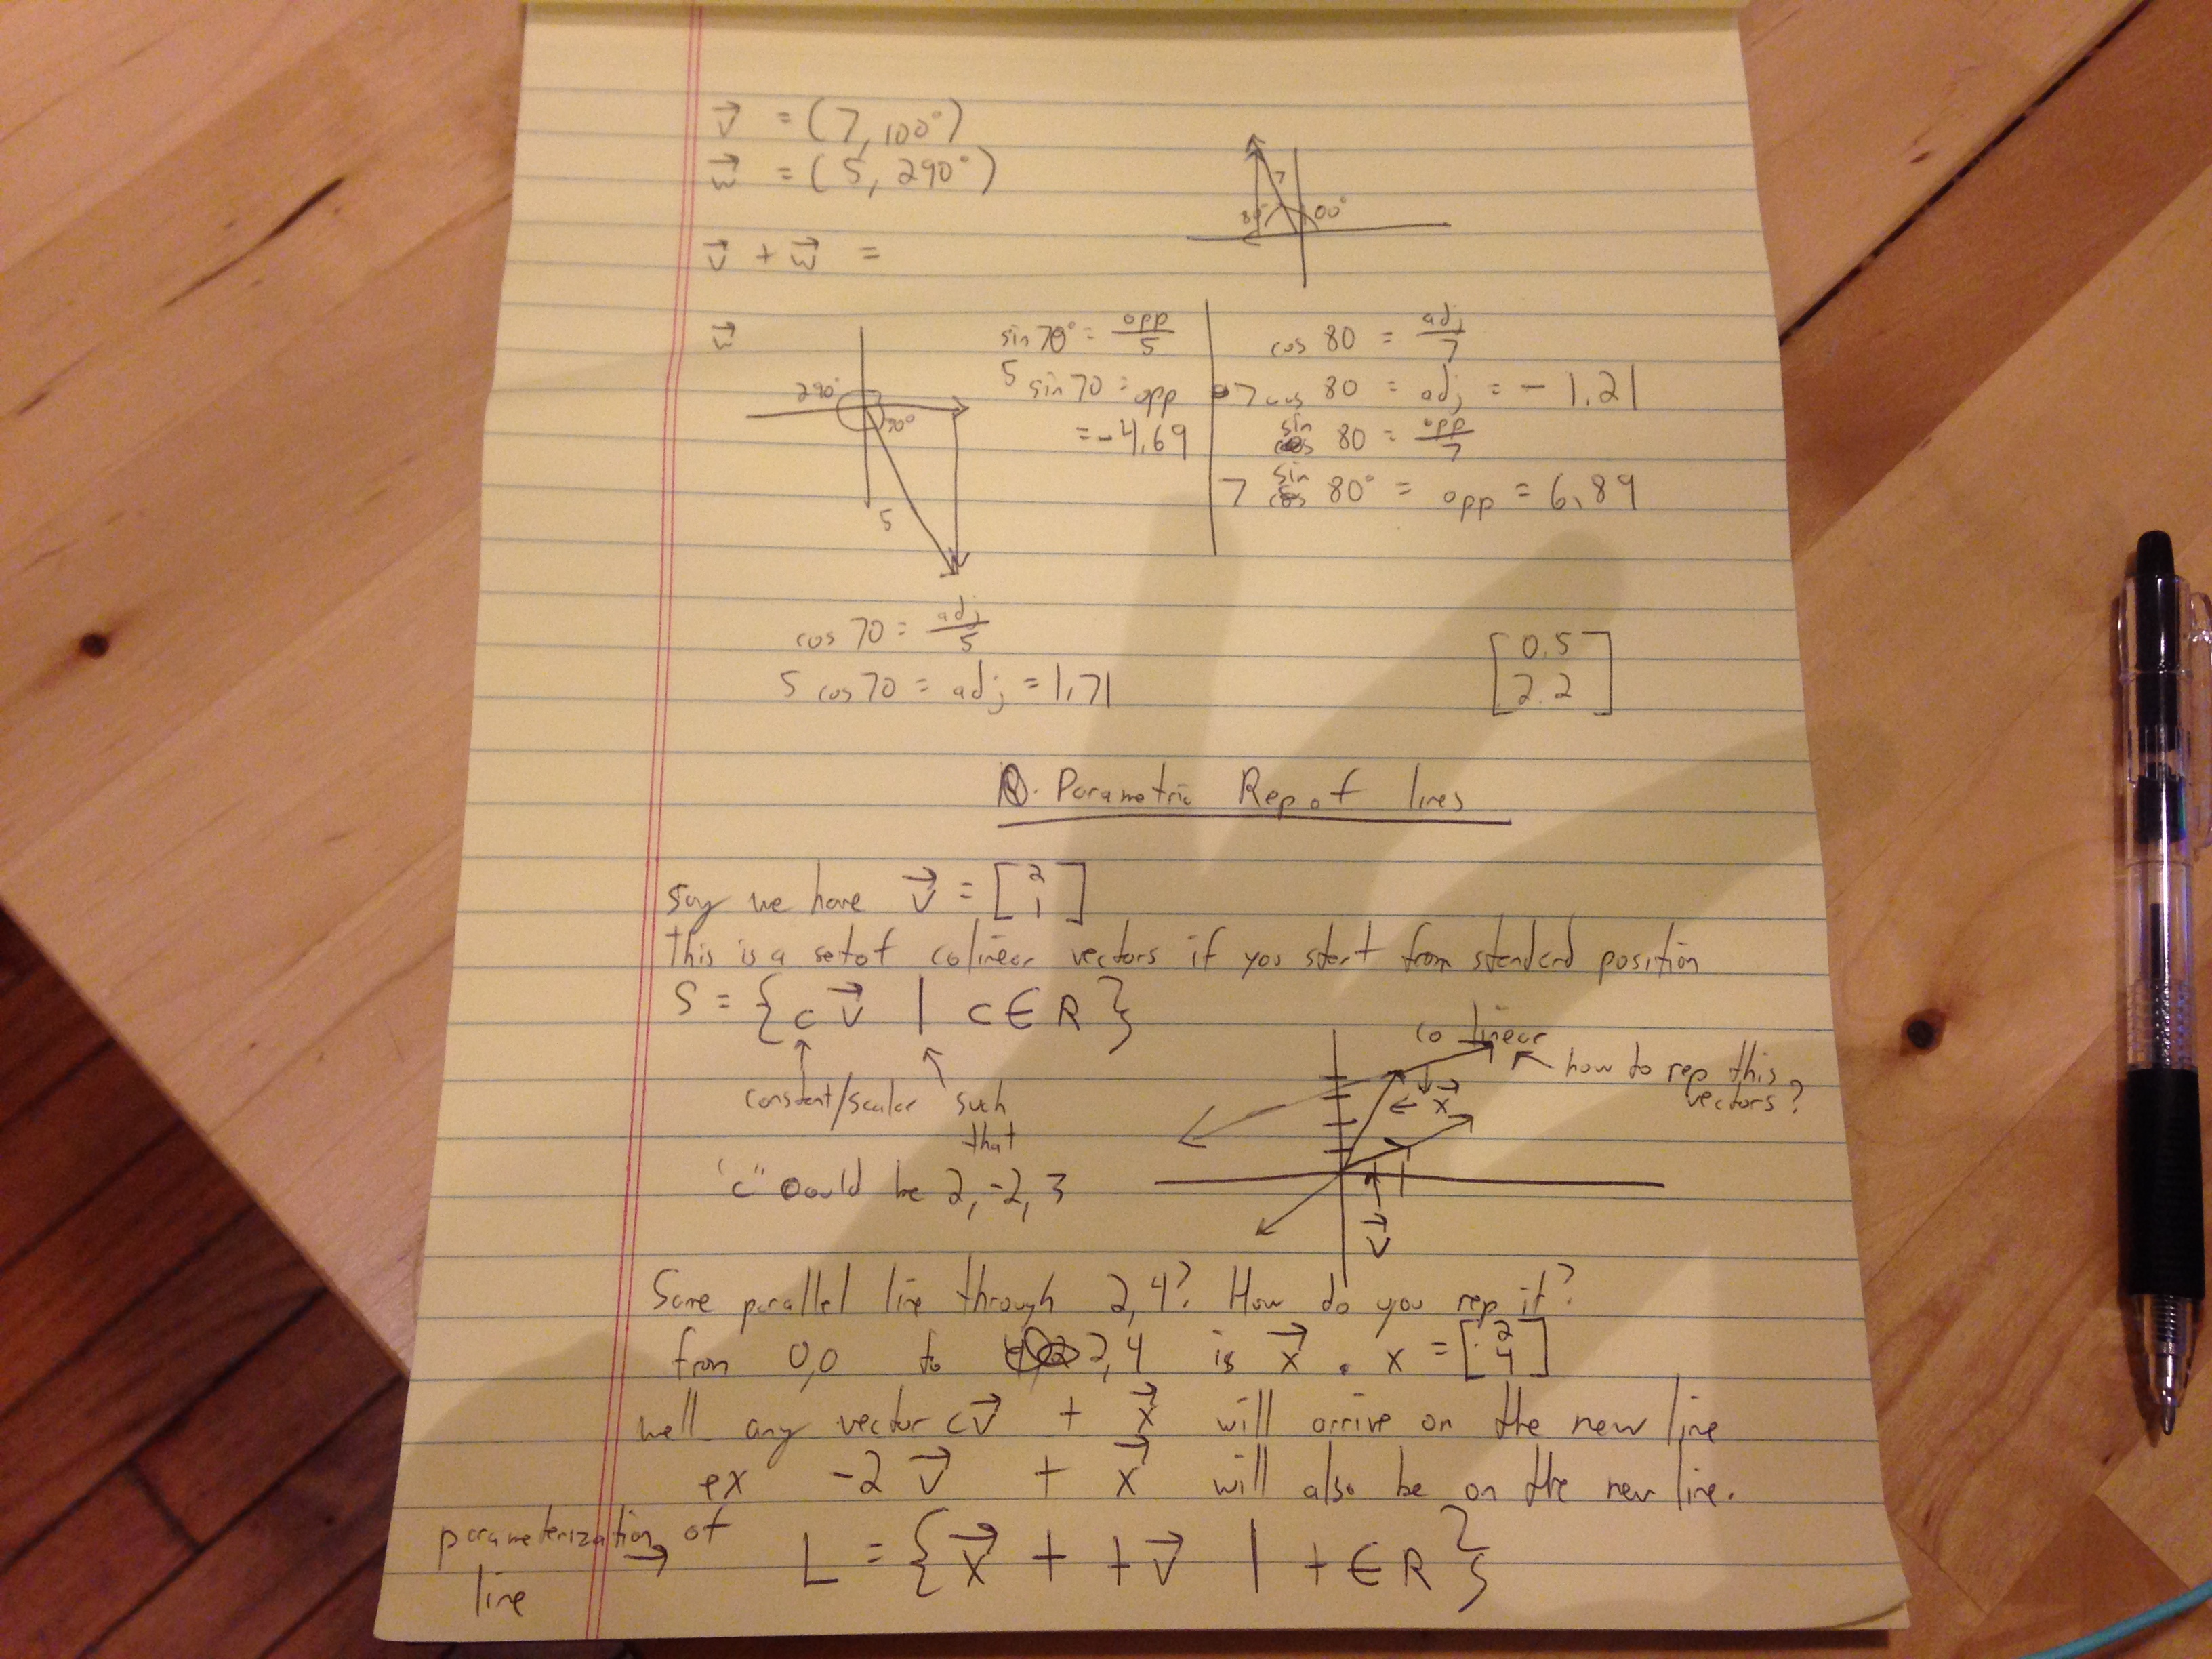 v⃗ = (7, 100°)
w⃗ = (5, 290°)
v⃗ + w⃗ =
7
80°
100°
w⃗
290°
70°
5
sin 70° = opp/5
5 sin 70 = opp
= -4.69
cos 80 = adj/7
7 cos 80 = adj = -1.21
sin 80 = opp/7
7 sin 80° = opp = 6.89
cos 70 = adj/5
5 cos 70 = adj = 1.71
[0.5
2.2]
Parametric Rep of lines
Say we have v⃗ = [2
1]
this is a set of colinear vectors if you start from standard position
S = { c v⃗ | c ∈ R }
constant/scalar
such
that
"c" could be 2, -2, 3
co linear
← how to rep this?
vectors?
v⃗
← x
v⃗
Same parallel line through 2,4? How do you rep it?
from 0,0 to 2,4 is x⃗. x = [2
4]
well any vector cv⃗ + x⃗ will arrive on the new line
ex -2v⃗ + x⃗ will also be on the new line.
parameterization of
line
→
L = { x⃗ + tv⃗ | t ∈ R }